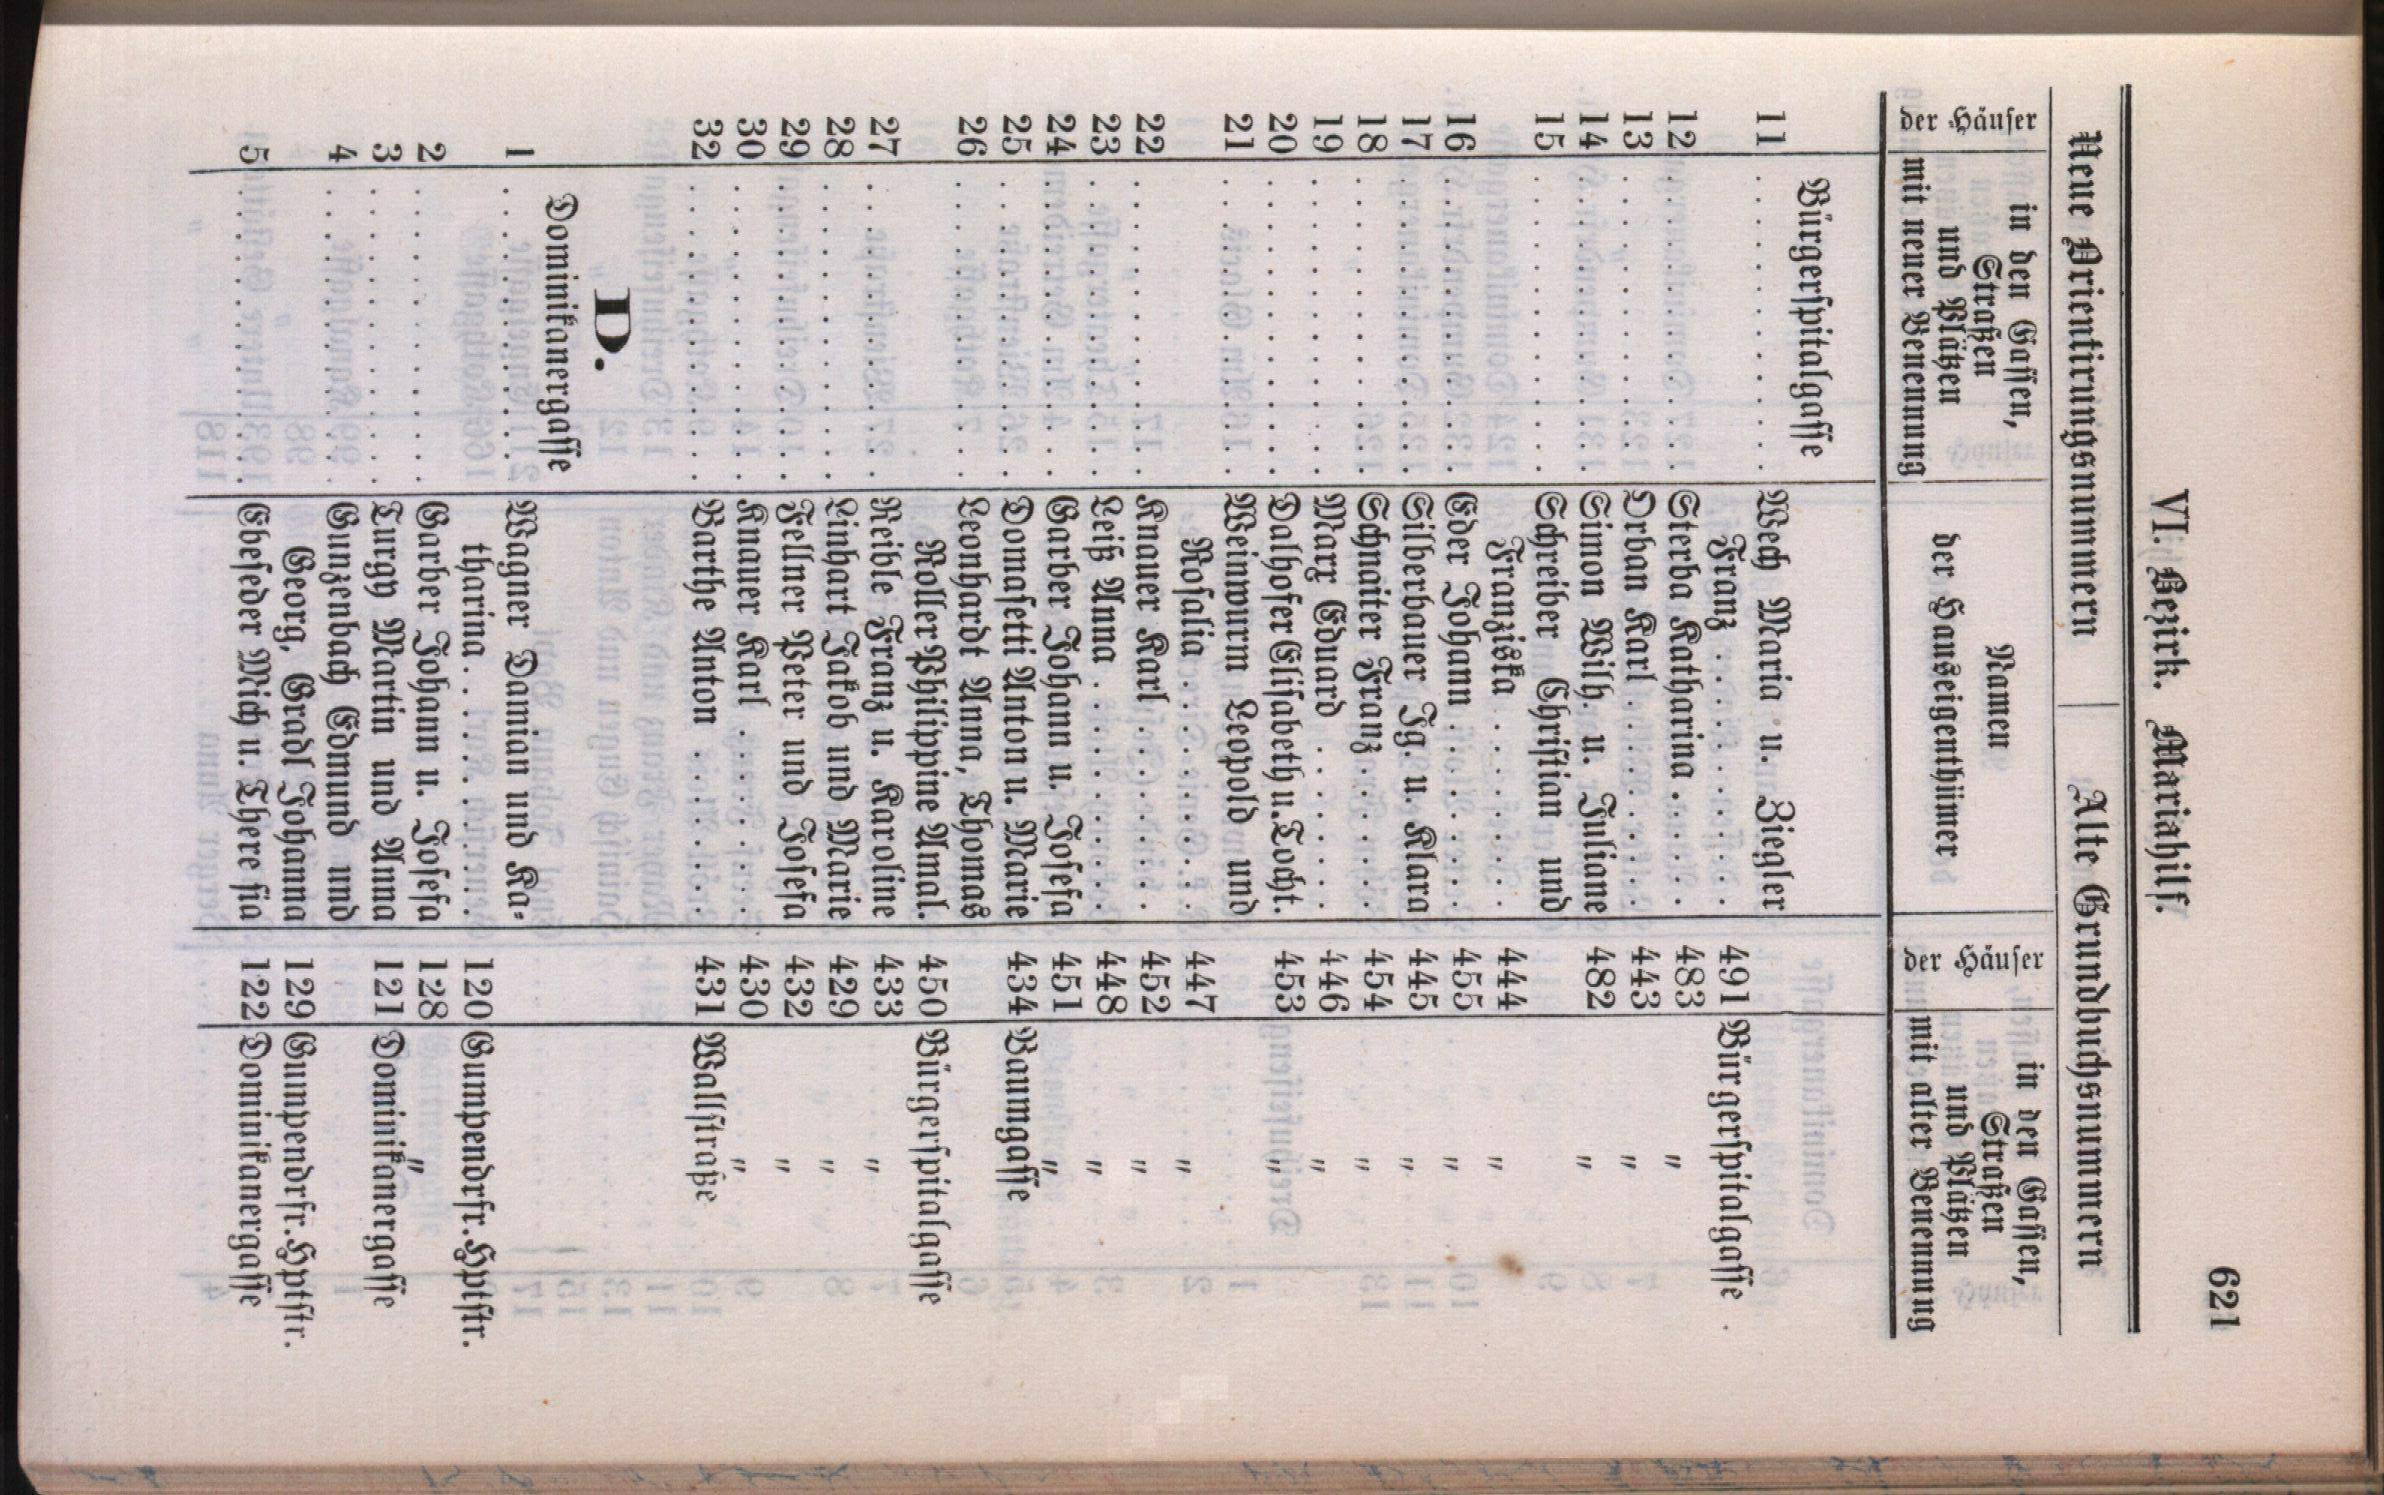 621
VI. Bezirk. Mariahilf.
Neue Orientirungsnummern Alte Grundbuchsnummern
der Häuser
in den Gassen,
Straßen
und Plätzen
mit neuer Benennung
Namen
der Hauseigenthümer
der Häuser
in den Gassen,
Straßen
und Plätzen
mit alter Benennung
Bürgerspitalgasse
11 . . . . . . . Wech Maria u. Ziegler
Franz . . . . . 491 Bürgerspitalgasse
12 . . . . . . . Sterba Katharina . . . 483 "
13 . . . . . . . Orban Karl . . . . . 443 "
14 . . . . . . . Simon Wilh. u. Juliane 482 "
15 . . . . . . . Schreiber Christian und
Franziska . . . . . 444 "
16 . . . . . . . Eder Johann . . . . . 455 "
17 . . . . . . . Silberbauer Ig. u. Klara 445 "
18 . . . . . . . Schnaiter Franz . . . . 454 "
19 . . . . . . . Marx Eduard . . . . . 446 "
20 . . . . . . . Dalhofer Elisabeth u. Tocht. 453 "
21 . . . . . . . Weinwurm Leopold und
Rosalia . . . . . 447 "
22 . . . . . . . Knauer Karl . . . . . 452 "
23 . . . . . . . Leiß Anna . . . . . 448 "
24 . . . . . . . Garber Johann u. Josefa 451 "
25 . . . . . . . Donasetti Anton u. Marie 434 Baumgasse
26 . . . . . . . Leonhardt Anna, Thomas
Roller Philippine Amal. 450 Bürgerspitalgasse
27 . . . . . . . Reible Franz u. Karoline 433 "
28 . . . . . . . Linhart Jakob und Marie 429 "
29 . . . . . . . Fellner Peter und Josefa 432 "
30 . . . . . . . Knauer Karl . . . . . 430 "
32 . . . . . . . Barthe Anton . . . . . 431 Wallstraße
D.
Dominikanergasse
1 . . . . . . . Wagner Damian und Ka-
tharina . . . . . 120 Gumpendrfr. Hptstr.
2 . . . . . . . Garber Johann u. Josefa 128 "
3 . . . . . . . Turgy Martin und Anna 121 Dominikanergasse
4 . . . . . . . Gunzenbach Edmund und
Georg, Gradl Johanna 129 Gumpendrfr. Hptstr.
5 . . . . . . . Ebeseder Mich u. There sia 122 Dominikanergasse